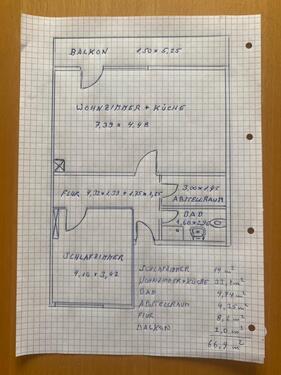 BALKON 1.50 × 5,25
WOHNZIMMER + KÜCHE
7,39 × 4,48
3,00 × 1,45
FLUR 4,32 × 1.39 + 1.75 × 1,25
ABSTELLRAUM
BAD
SCHLAFZIMMER
4,10 × 3,42
SCHLAFZIMMER 14 m²
WOHNZIMMER + KÜCHE 33,1 m²
BAD 4,74 m²
ABSTELLRAUM 4,35 m²
FLUR 8,2 m²
BALKON 2,0 m²
66,4 m²